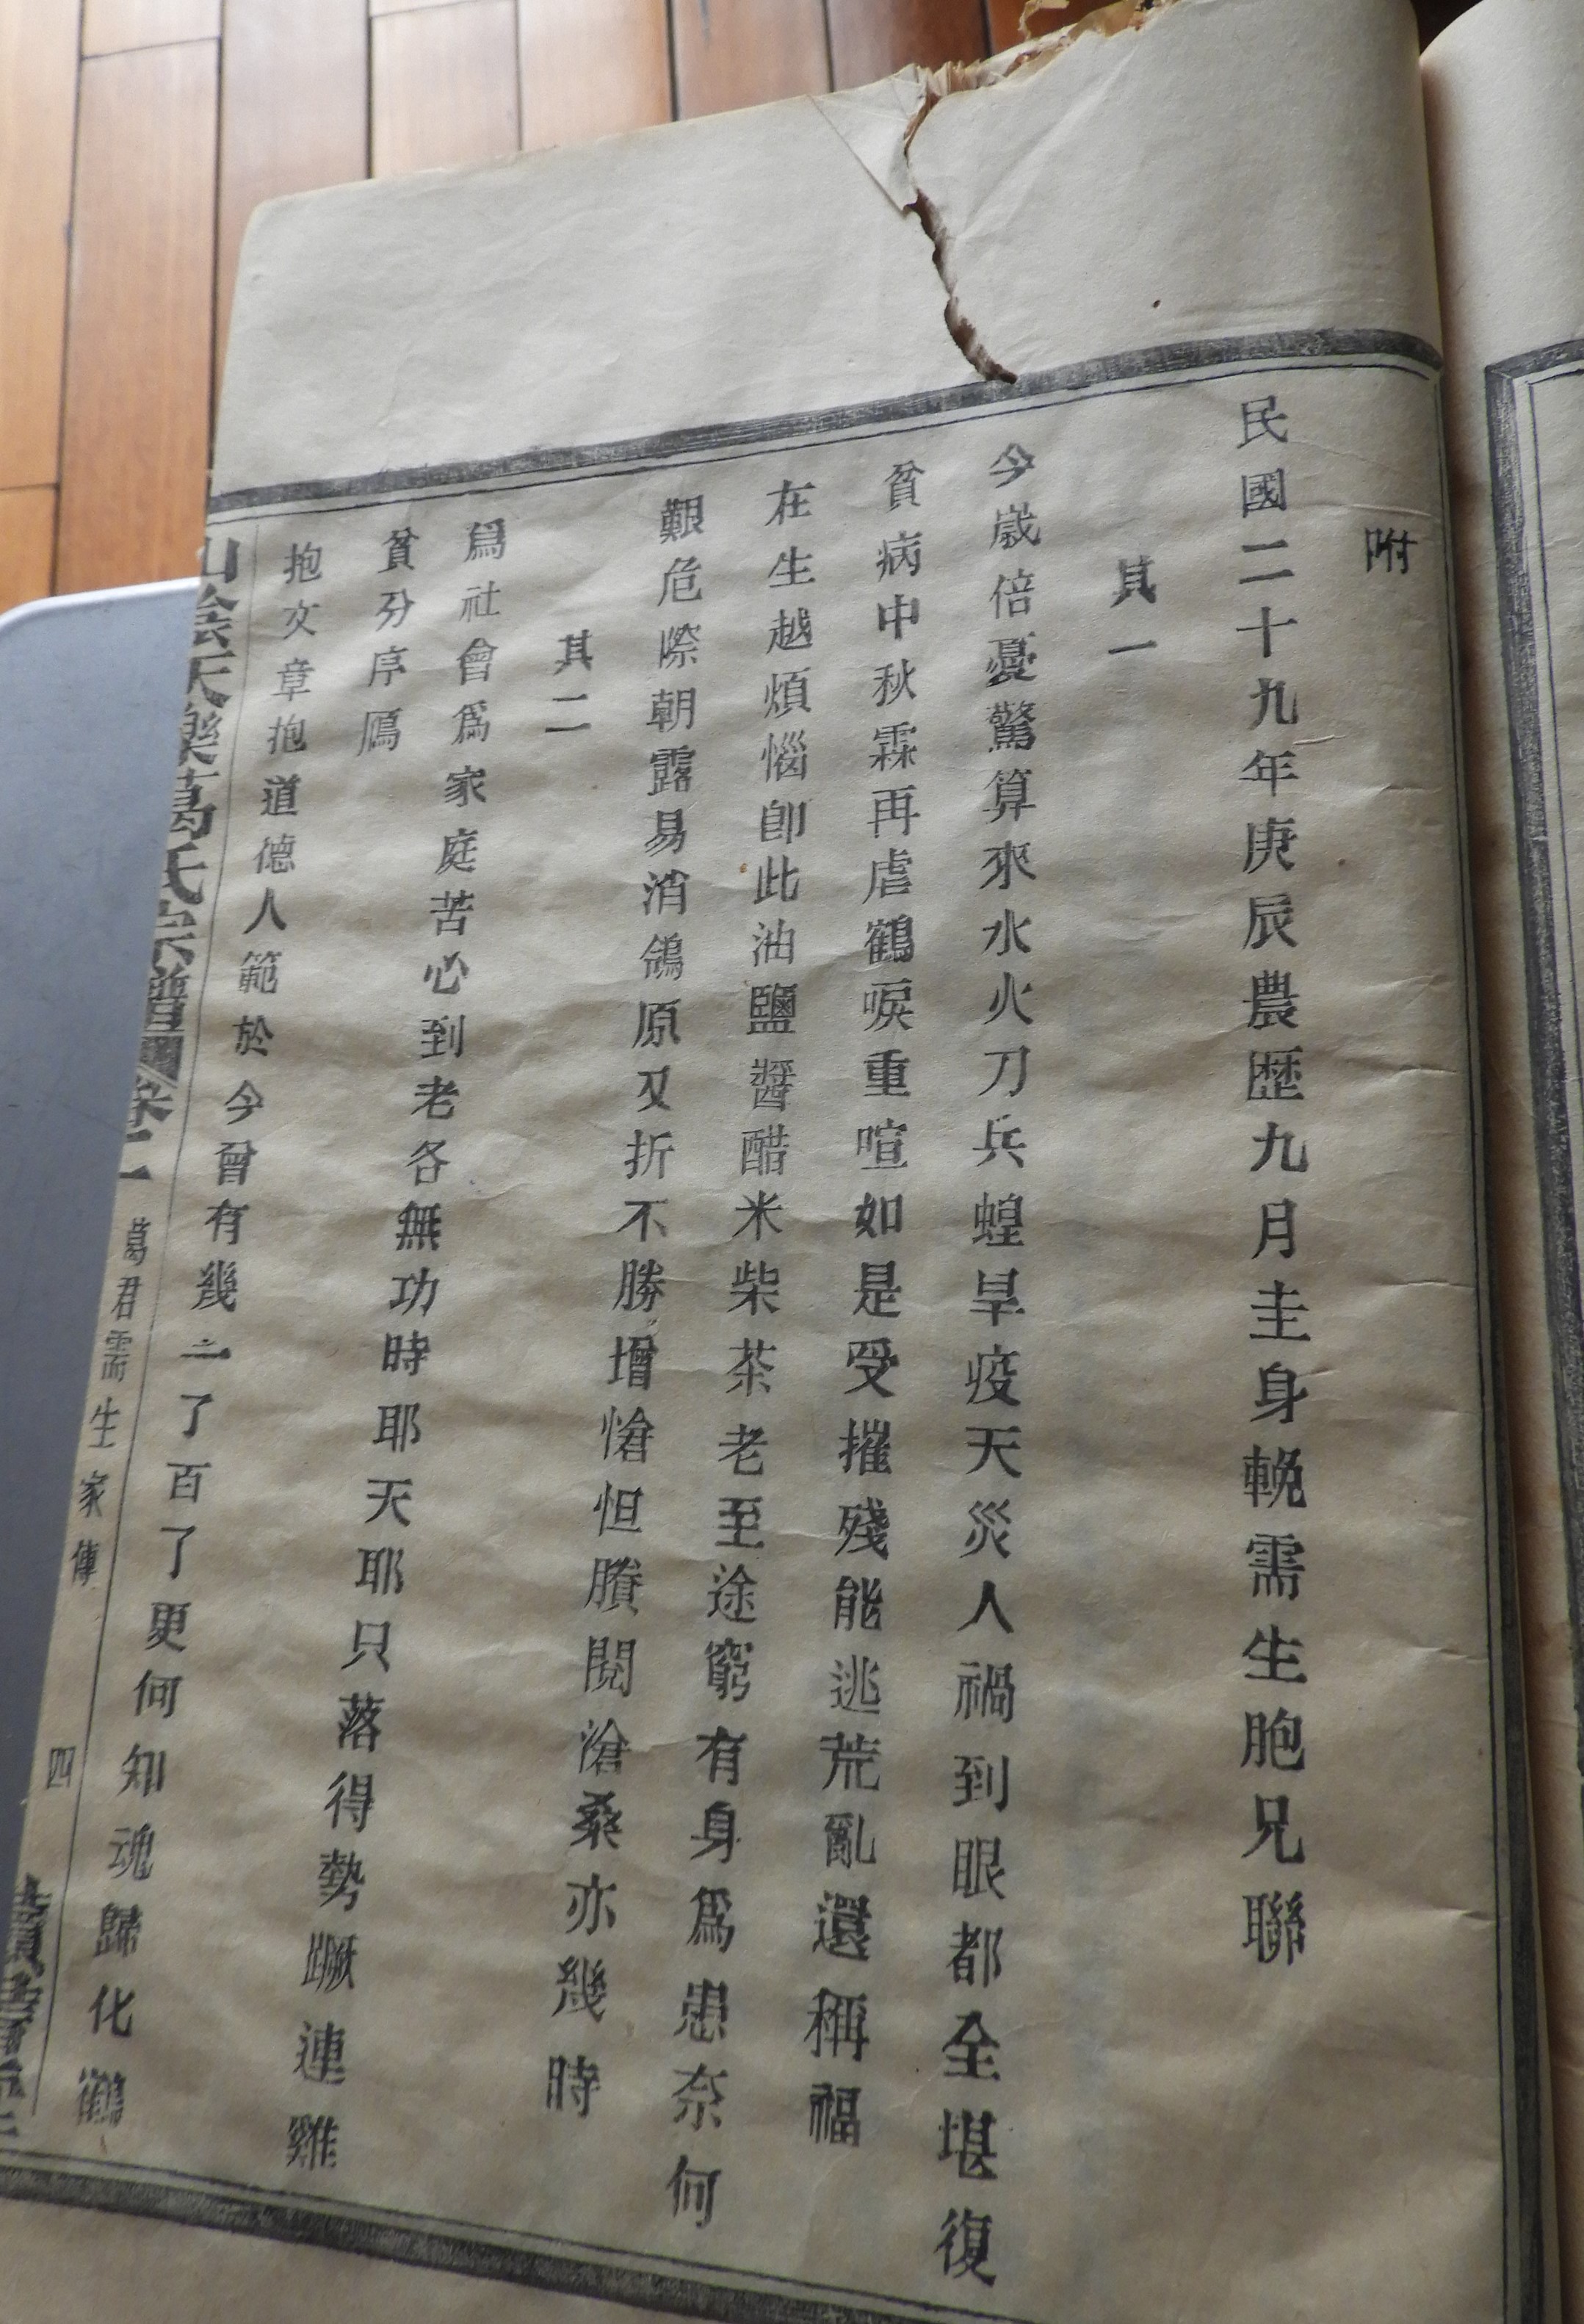 附
民國二十九年庚辰農歷九月圭身輓需生胞兄聯
其一
今歲倍憂驚算來水火刀兵蝗旱疫天災人禍到眼都全堪復
貧病中秋霖再虐鶴唳重喧如是受摧殘能逃荒亂還稱福
在生越煩惱卽此油鹽醬醋米柴茶老至途窮有身爲患奈何
艱危際朝露易消鴒原又折不勝增愴怛賸閱滄桑亦幾時
其二
爲社會爲家庭苦心到老各無功時耶天耶只落得勢蹶連雞
貧分序鴈
抱文章抱道德人範於今曾有幾一了百了更何知魂歸化鶴
山陰天樂葛氏宗譜 卷二 葛君需生家傳 四